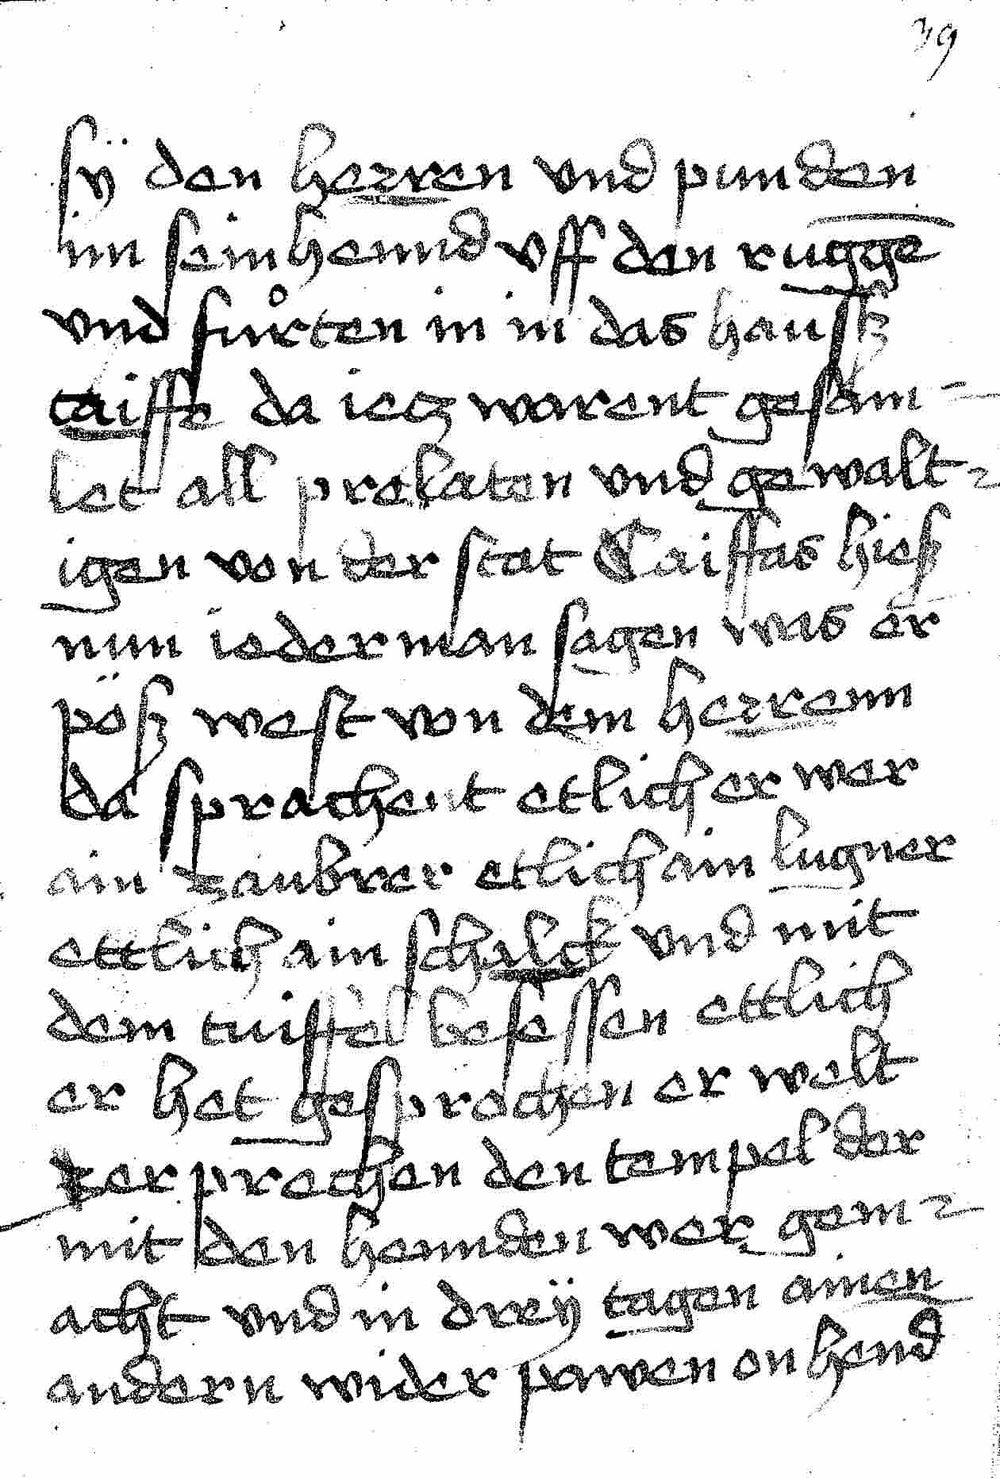 39
sÿ den herren vnd punden
im sein hennd vff den rugge
vnd fůrten in in das hausz
caiffe da iecz warent gesam-
let all prelaten vnd gewalt-
igen von der stat Caiffas hiesz
nun iederman sagen was er
pösz west von dem herrenn
da sprachent etlich er wer
ain zaubrer etlich ain lugner
ettlich ain schalck vnd mit
dem tuiffel besessen ettlich
er het gesprochen er welt
zerprechen den tempel der
mit den hennden wer gem-
acht vnd in dreÿ tagen ainen
andern wider pawen on hend